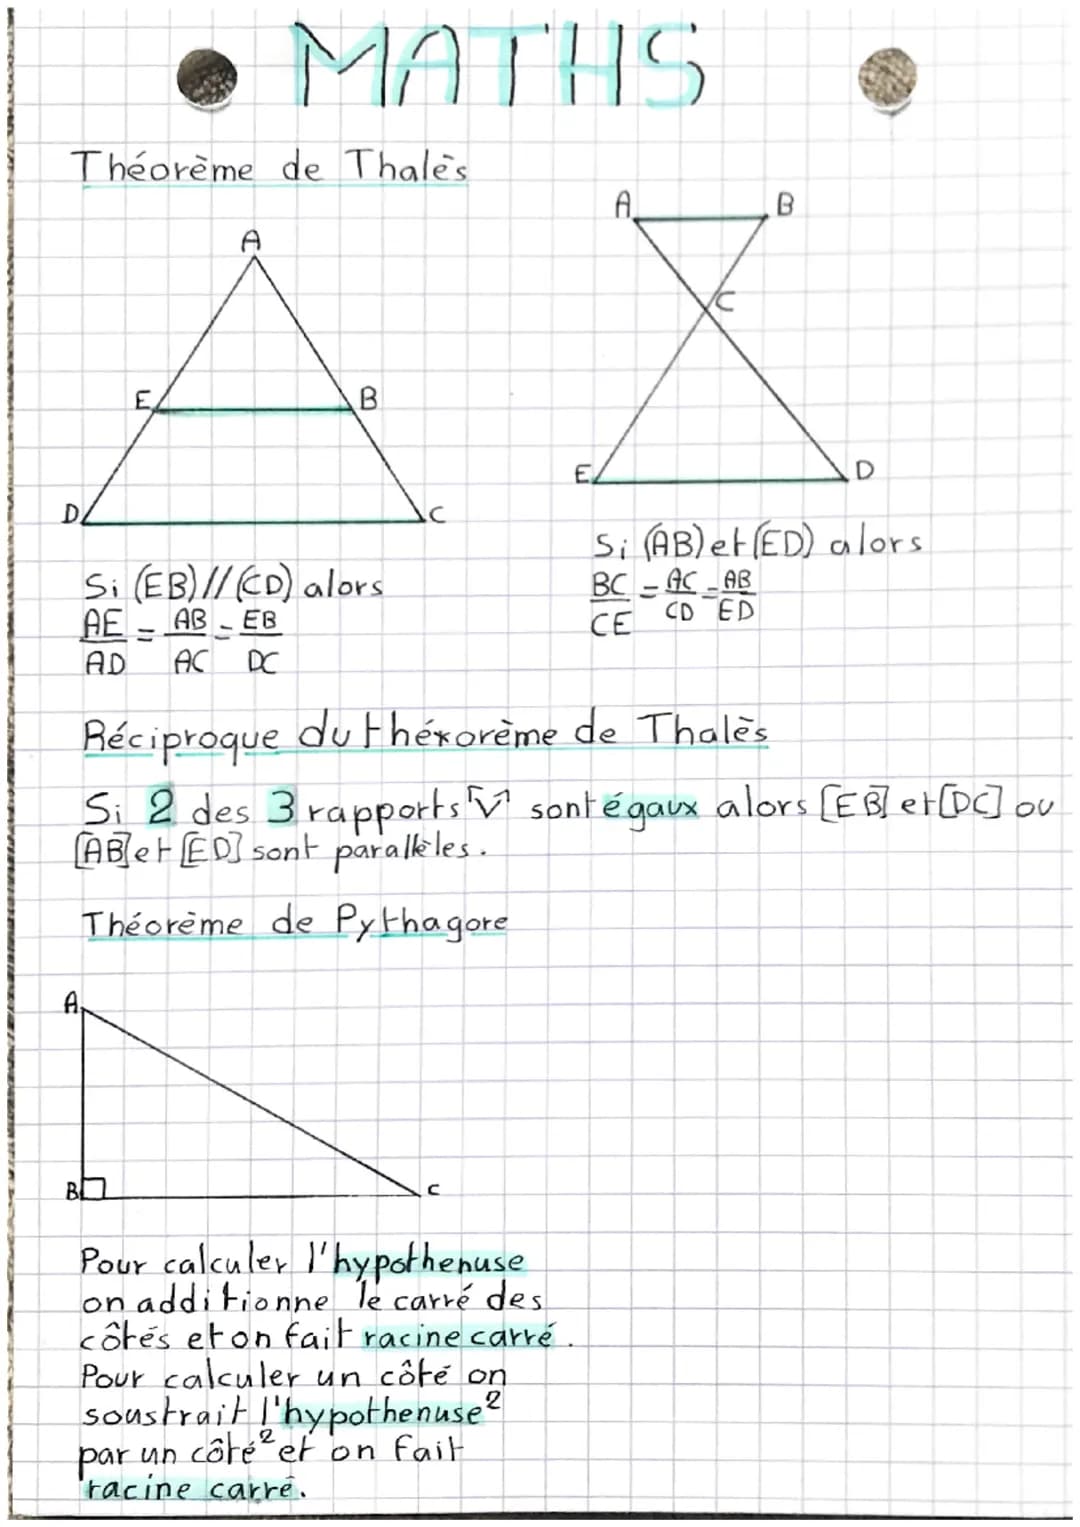 MATHS
Théorème de Thalès
A
E
B
D
C
A
B
C
E
D
Si (EB)//(CD) alors
AE/AD = AB/AC = EB/DC
Si (AB) et (ED) alors
BC/CE = AC/CD = AB/ED
Réciproque du théxorème de Thalès
Si 2 des 3 rapports sont égaux alors [EB] et [DC] ou
[AB] et [ED] sont parallèles.
Théorème de Pythagore
A
B
C
Pour calculer l'hypothenuse
on additionne le carré des
côtés et on fait racine carré.
Pour calculer un côté on
soustrait l'hypothenuse²
par un côté² et on fait
racine carré.